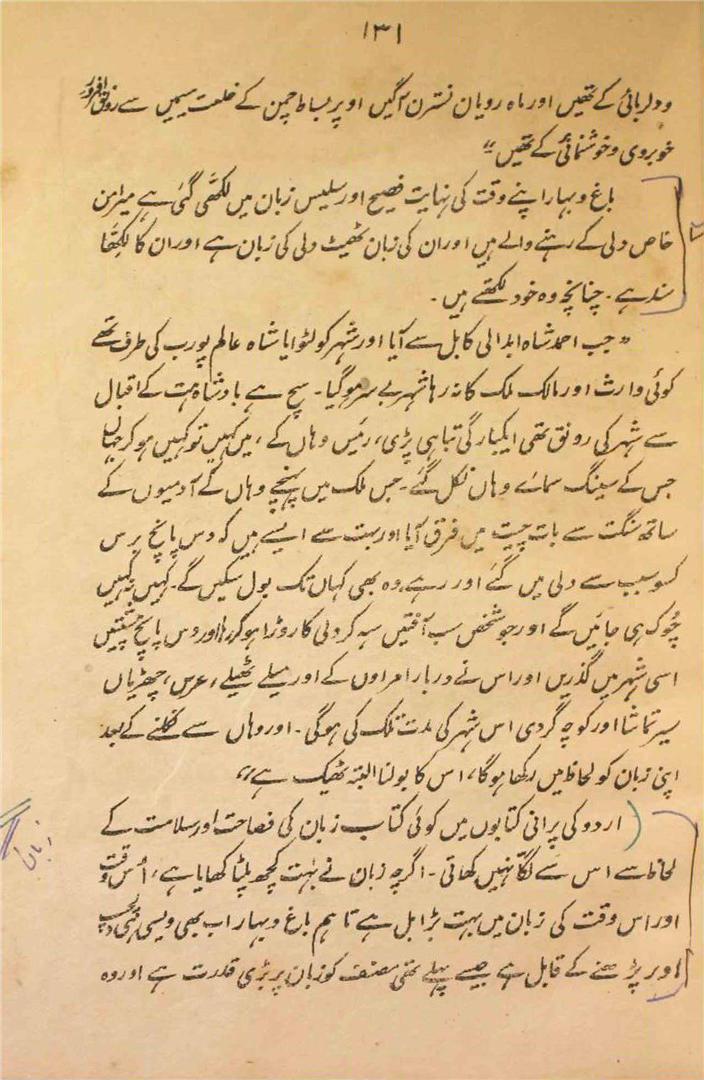 ۱۳۱
و دلربائی کے تھیں اور ماہ رویان نسترن آگیں اوپر بساط چمن کے خلعت سیمیں سے رونق افروز
خوبروی و خوشنمائی کے تھیں"
باغ و بہار اپنے وقت کی نہایت فصیح اور سلیس زبان میں لکھی گئی ہے میرامن
خاص دلی کے رہنے والے ہیں اور ان کی زبان ٹھیٹ دلی کی زبان ہے اور ان کا لکھا
سند ہے۔ چنانچہ وہ خود لکھتے ہیں۔
"جب احمد شاہ ابدالی کابل سے آیا اور شہر کو لٹوایا شاہ عالم پورب کی طرف تھے
کوئی وارث اور مالک ملک کا نہ رہا شہر بے سر ہوگیا۔ سچ ہے بادشاہت کے اقبال
سے شہر کی رونق تھی ایکبارگی تباہی پڑی، رئیس وہاں کے، میں کہیں تو کہیں ہوکر جہاں
جس کے سینگ سمائے وہاں نکل گئے۔ جس ملک میں پہنچے وہاں کے آدمیوں کے
ساتھ سنگت سے بات چیت میں فرق آیا اور بہت سے ایسے ہیں کہ دس پانچ برس
کسو سبب سے دلی میں گئے اور رہے وہ بھی کہاں تک بول سکیں گے۔ کہیں نہ کہیں
چوک ہی جائیں گے اور جو شخص سب آفتیں سہہ کر دلی کا روڑا ہوکر رہا اور دس پانچ پشتیں
اسی شہر میں گذریں اور اس نے دربار امراوں کے اور میلے ٹھیلے، عرس، چھڑیاں
سیر تماشا اور کوچہ گردی اس شہر کی مدت تلک کی ہوگی۔ اور وہاں سے نکلنے کے بعد
اپنی زبان کو لحاظ میں رکھا ہوگا، اس کا بولنا البتہ ٹھیک ہے"
اردو کی پرانی کتابوں میں کوئی کتاب زبان کی فصاحت اور سلامت کے
لحاظ سے اس سے لگا نہیں کھاتی۔ اگرچہ زبان نے بہت کچھ پلٹا کھایا ہے، اُس وقت
اور اس وقت کی زبان میں بہت بڑا بل ہے تاہم باغ و بہار اب بھی ویسی ہی دلچسپ
اور پڑھنے کے قابل ہے جیسے پہلے تھی مصنف کو زبان پر بڑی قدرت ہے اور وہ
زبان